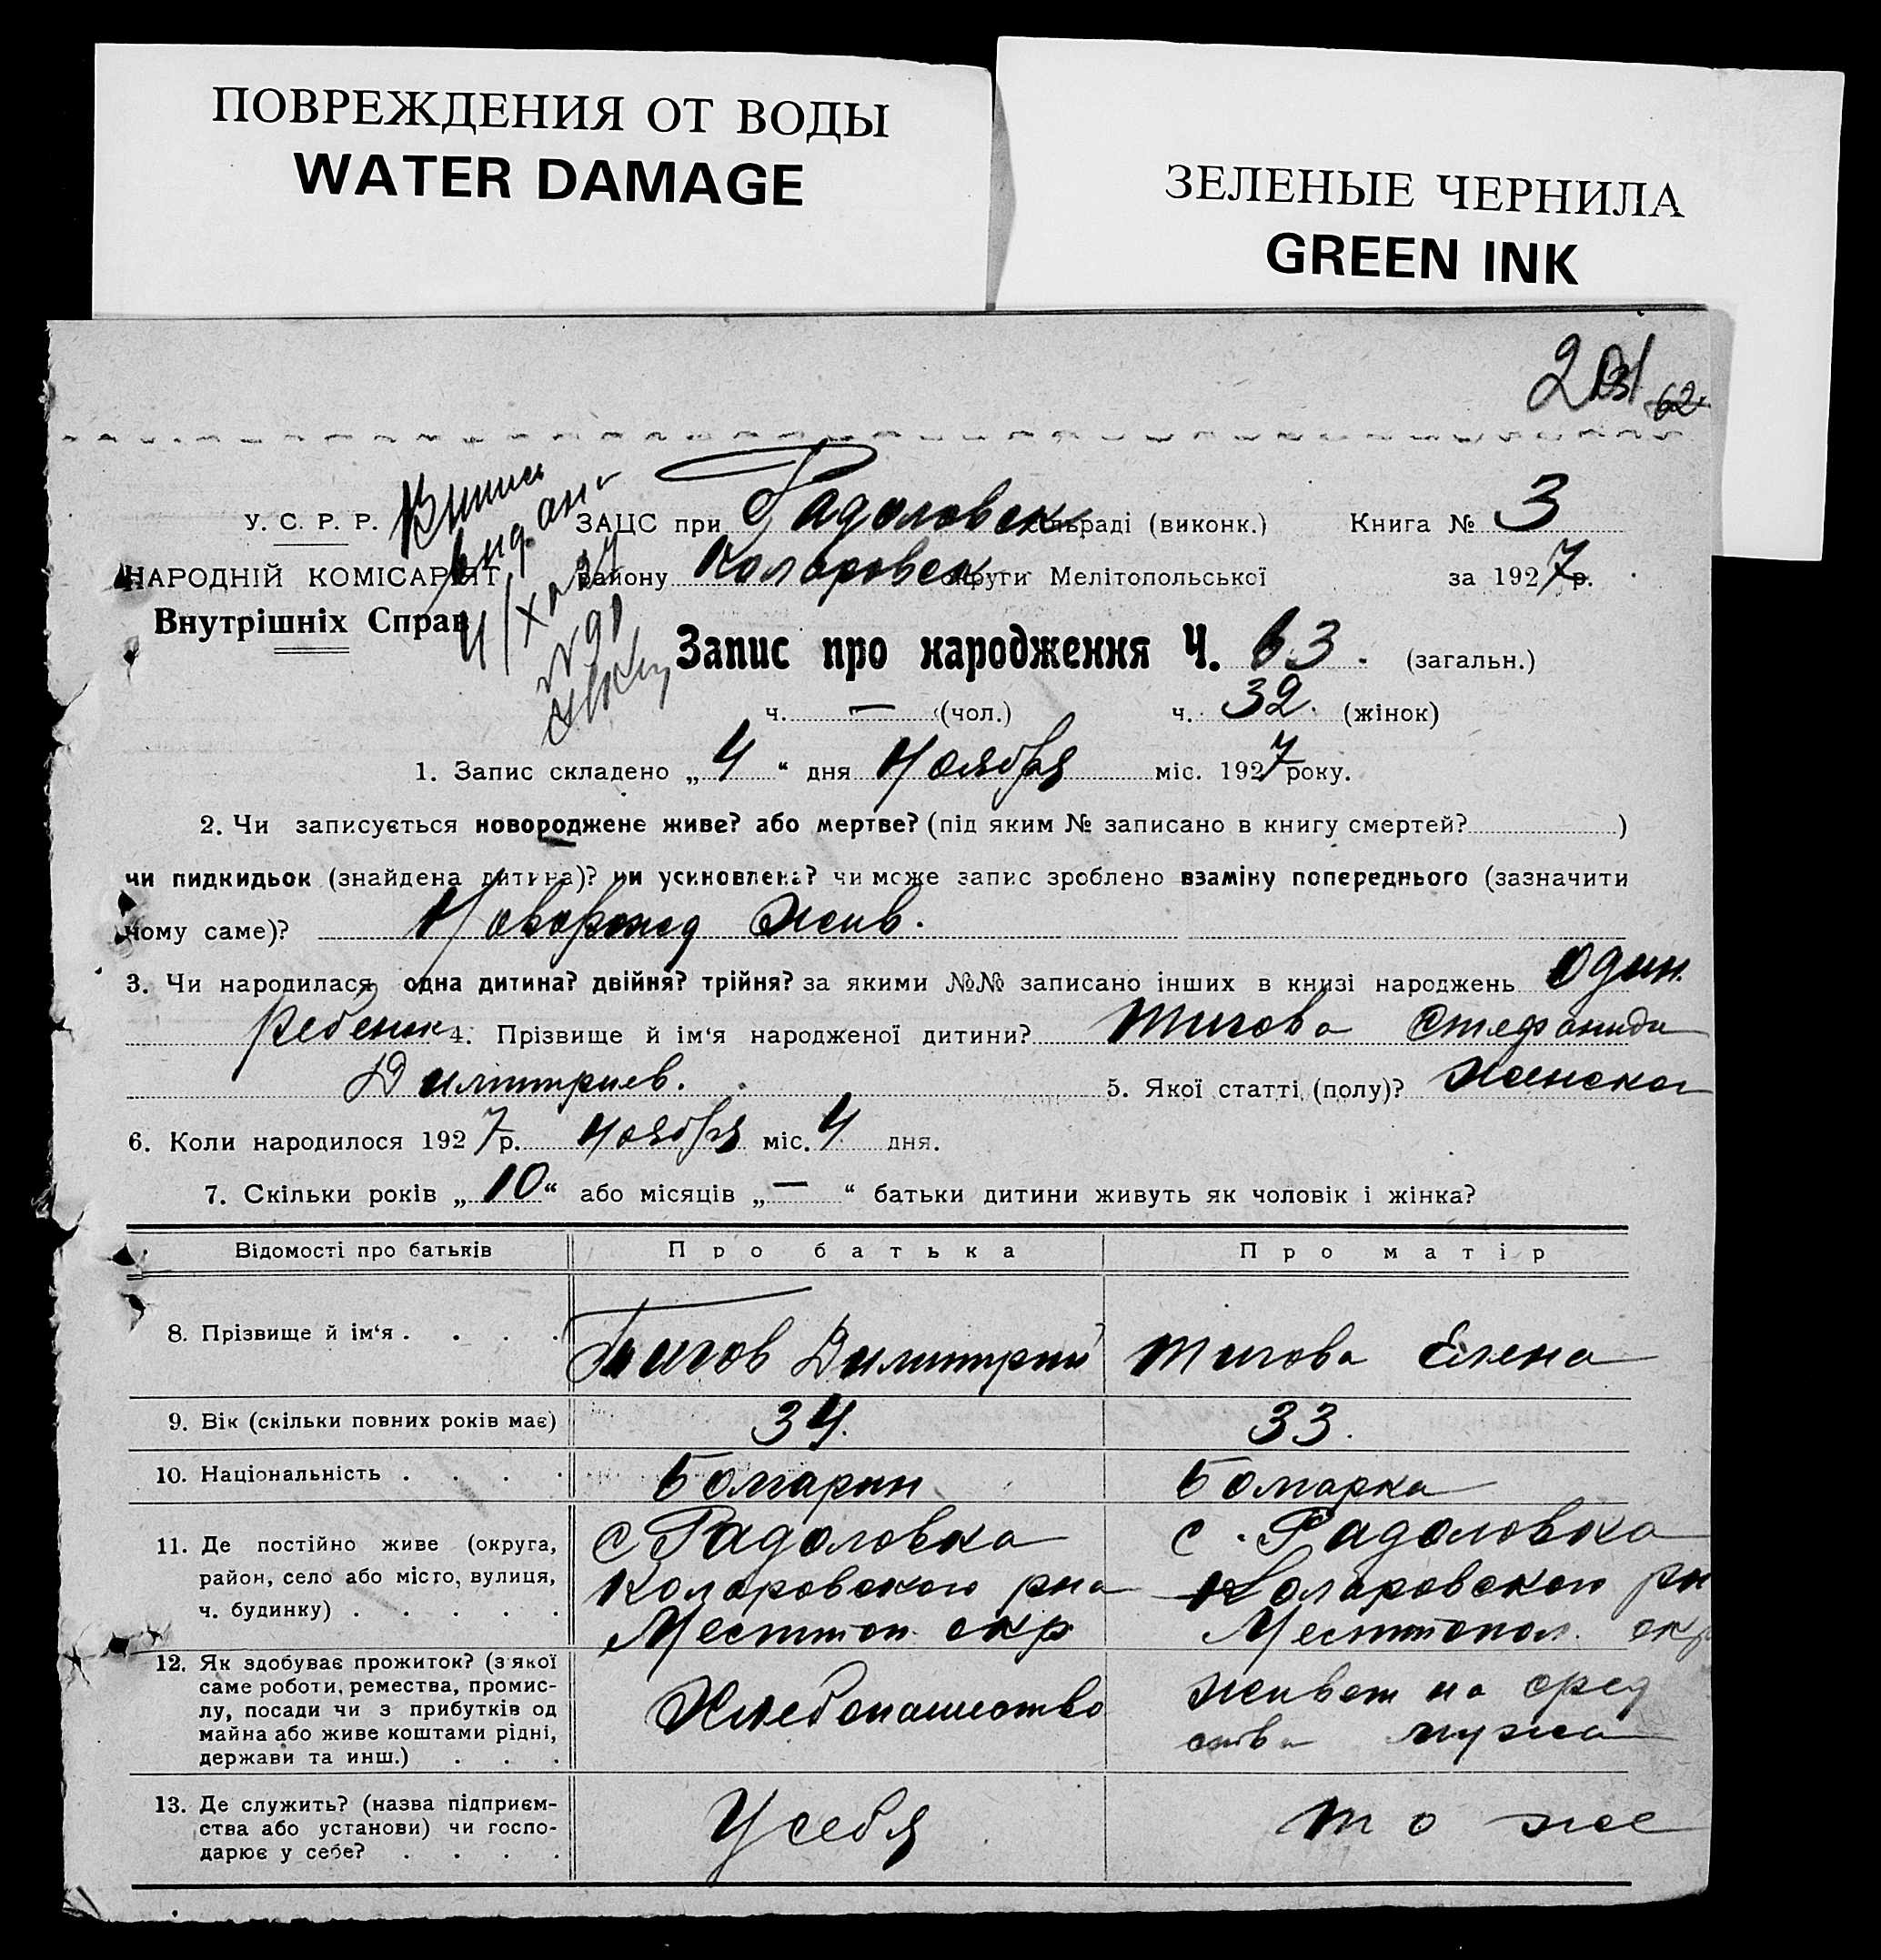 ПОВРЕЖДЕНИЯ ОТ ВОДЫ
WATER DAMAGE
ЗЕЛЕНЫЕ ЧЕРНИЛА
GREEN INK
62
У. С. Р. Р. ЗАЦС при Радоловск сільраді (виконк.) Книга № 3
НАРОДНІЙ КОМІСАРІЯТ району Коларовск округи Мелітопольської за 1927 р.
Внутрішніх Справ
Випис
видан
Запис про народження Ч. 63. (загальн.)
ч. — (чол.) ч. 32. (жінок)
1. Запис складено „4“ дня Ноября міс. 1927 року.
2. Чи записується новороджене живе? або мертве? (під яким № записано в книгу смертей? )
чи пидкидьок (знайдена дитина)? чи усиновлена? чи може запис зроблено взаміну попереднього (зазначити
чому саме)? Новорожд жив.
3. Чи народилася одна дитина? двійня? трійня? за якими №№ записано інших в книзі народжень один.
ребенок 4. Прізвище й ім‘я народженої дитини? Тигова Стефанида
Димитриев. 5. Якої статті (полу)? женской
6. Коли народилося 1927 р. Ноября міс. 4 дня.
7. Скільки років „10“ або місяців „—“ батьки дитини живуть як чоловік і жінка?
Відомості про батьків Про батька Про матір
8. Прізвище й ім‘я . . . . Тигов Димитрий Тигова Елена
9. Вік (скільки повних років має) 34. 33.
10. Національність . . . . Болгарин Болгарка
11. Де постійно живе (округа, с Радоловка с. Радоловка
район, село або місто, вулиця, Коларовского рна Коларовского рн
ч. будинку) . . . . . Мелитоп. окр Мелитопол. окр
12. Як здобуває прожиток? (з якої
саме роботи, ремества, промис-
лу, посади чи з прибутків од Хлебопашество живет на сред
майна або живе коштами рідні, ства мужа
держави та инш.) . . .
13. Де служить? (назва підприєм-
ства або установи) чи госпо- У себя то же
дарює у себе? . . . .